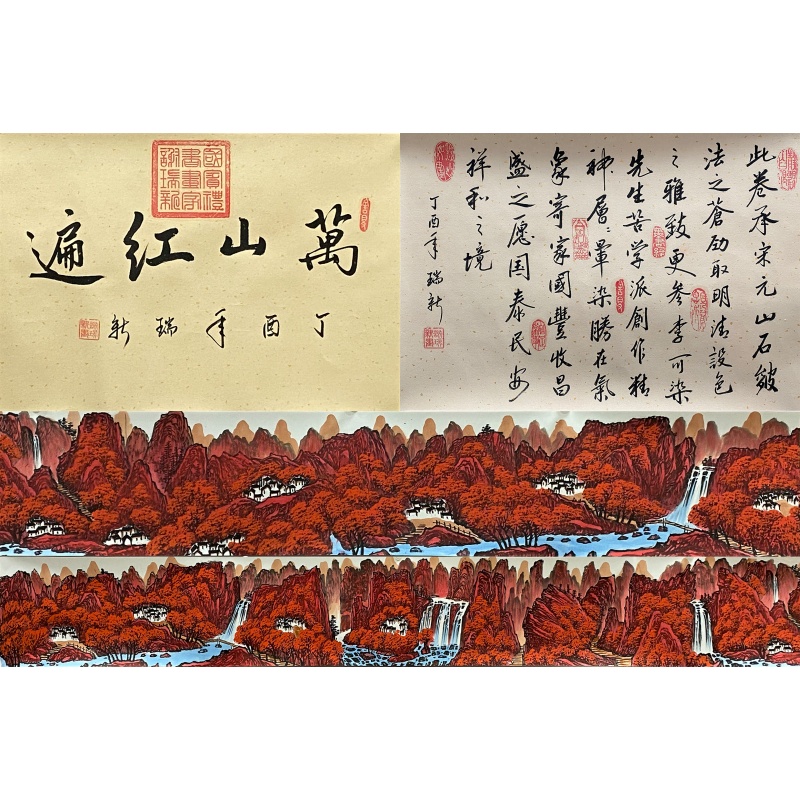 萬山红遍
丁酉年瑞新
國賓禮
書畫家
謝瑞新
此卷承宋元山石皴
法之蒼劲取明清設色
之雅致更参李可染
先生苦学派創作精
神層層暈染勝在氣
象寄家國豐收昌
盛之愿国泰民安
祥和之境
丁酉年瑞新